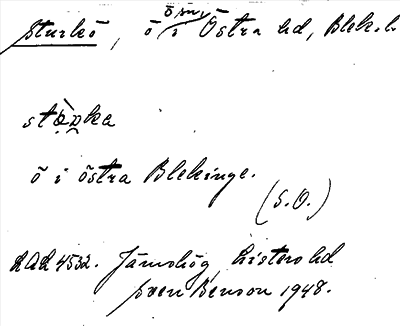 Sturkö, ö i Östra hd, Blek. l.
ö i östra Blekinge.
(S.O.)
LAL 4532. Jämshög, Listers hd
Sven Benson 1948.